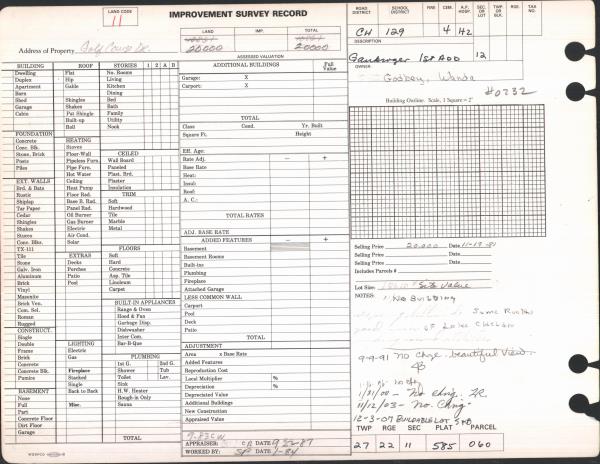 LAND CODE
11
IMPROVEMENT SURVEY RECORD
LAND IMP. TOTAL
20000 20000
ASSESSED VALUATION
Address of Property Golf Course Dr.
ROAD DISTRICT SCHOOL DISTRICT FIRE CEM. A.P. HOSP. SEC. OR LOT TWP. OR BLK RGE. TAX NO.
CH 129 4 H2
DESCRIPTION
1st ADD 12
OWNER
Godbey, Wanda
#0232
Building Outline: Scale, 1 Square = 2'
BUILDING ROOF STORIES 1 2 A B
Dwelling Flat No. Rooms
Duplex Hip Living
Apartment Gable Kitchen
Barn Dining
Shed Shingles Bed
Garage Shakes Bath
Cabin Pat Shingle Family
Built-up Utility
Roll Nook
FOUNDATION
Concrete HEATING
Conc. Blk. Stoves
Stone, Brick Floor-Wall CEILED
Posts Pipeless Furn. Wall Board
Piles Pipe Furn. Paneled
Hot Water Plast. Brd.
EXT. WALLS Ceiling Plaster
Brd. & Bats Heat Pump Insulation
Rustic Floor Rad. TRIM
Shiplap Base B. Rad. Soft
Tar Paper Panel Rad. Hardwood
Cedar Oil Burner Tile
Shingles Gas Burner Marble
Shakes Electric Metal
Stucco Air Cond.
Conc. Blks. Solar
TX-111 FLOORS
Tile EXTRAS Soft
Stone Decks Hard
Galv. Iron Porches Concrete
Aluminum Patio Asp. Tile
Brick Pool Linoleum
Vinyl Carpet
Masonite
Brick Ven. BUILT-IN APPLIANCES
Com. Sel. Range & Oven
Roman Hood & Fan
Rugged Garbage Disp.
CONSTRUCT. Dishwasher
Single Inter Com.
Double LIGHTING Bar-B-Que
Frame Electric
Brick Gas PLUMBING
Concrete 1st G. 2nd G.
Concrete Blk. Fireplace Shower Tub
Pumice Stacked Toilet Lav.
Single Sink
BASEMENT Back to Back H.W. Heater
None Rough-in Only
Full Misc. Sauna
Part
Concrete Floor
Dirt Floor
Garage TOTAL
ADDITIONAL BUILDINGS Full Value
Garage: X
Carport: X
TOTAL
Class Cond. Yr. Built
Square Ft. Height
Eff. Age:
Rate Adj. − +
Base Rate
Heat:
Insul:
Roof:
A. C.:
TOTAL RATES
ADJ. BASE RATE
ADDED FEATURES − +
Basement
Basement Rooms
Built-ins
Plumbing
Fireplace
Attached Garage
LESS COMMON WALL
Carport:
Pool
Deck
Patio
TOTAL
ADJUSTMENT
Area x Base Rate
Added Features
Reproduction Cost
Local Multiplier %
Depreciation %
Depreciated Value
Additional Buildings
New Construction
Appraised Value
9-83CW
APPRAISER: CR DATE 9-22-87
WORKED BY: SP DATE 1-84
Selling Price 20,000 Date 11-19-81
Selling Price Date
Includes Parcels #
Lot Size: Site Value
NOTES: No Building
Same
of Lake Chelan
9-9-91 No Chge. beautiful View.
1/31/00 - No Chng.
11/12/03 - No Chng
12-3-07 BUILDABLE LOT
TWP RGE SEC PLAT PARCEL
27 22 11 585 060